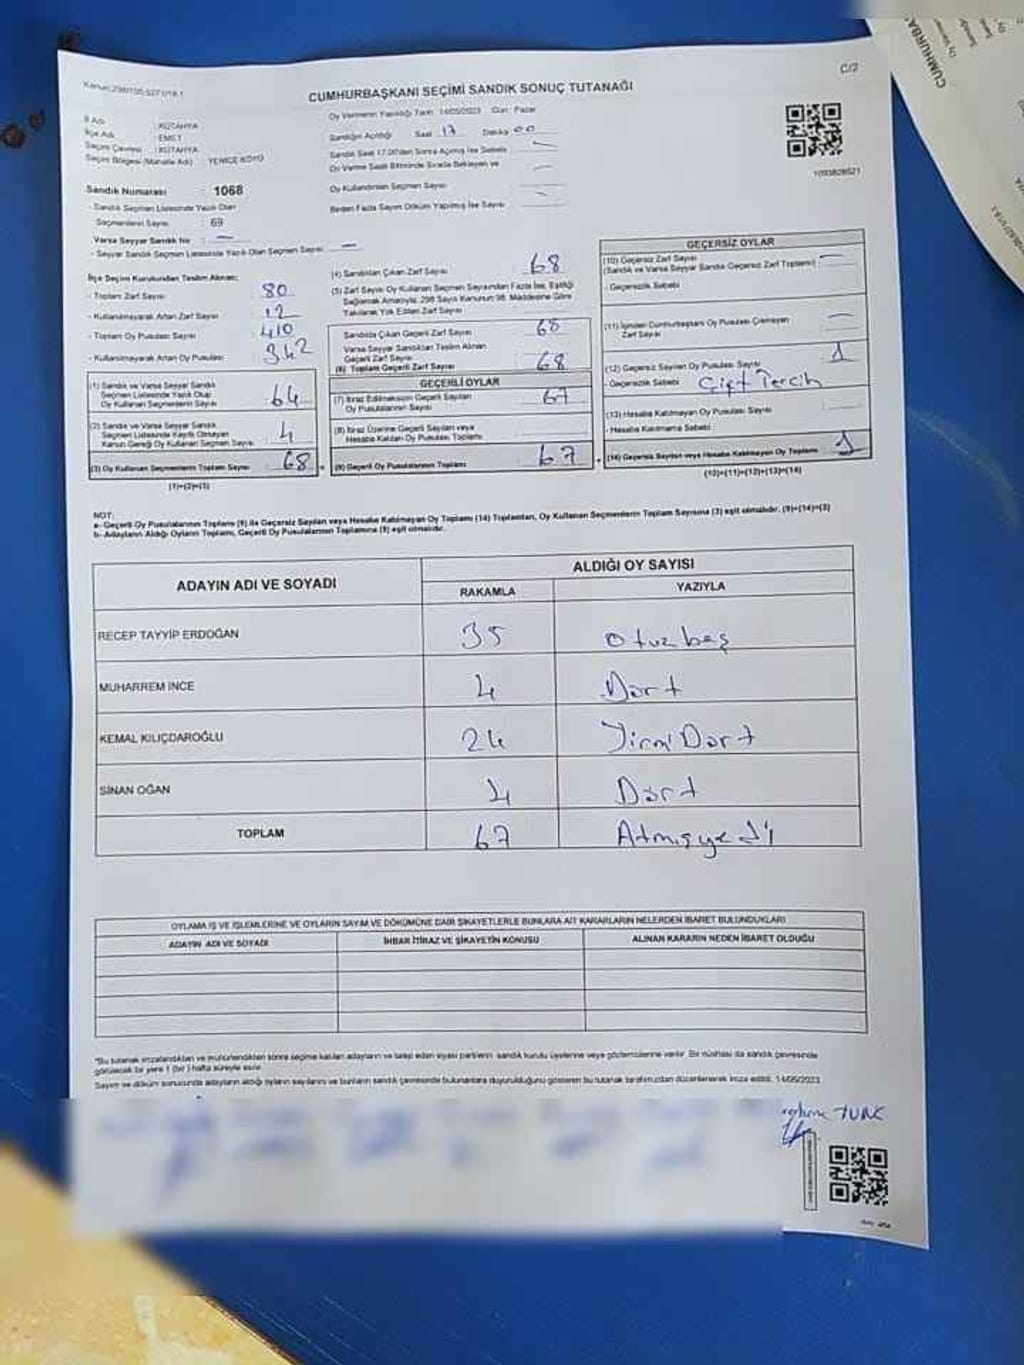 CUMHURBAŞKANI SEÇİMİ SANDIK SONUÇ TUTANAĞI
C/2
İl Adı : KÜTAHYA
İlçe Adı : EMET
Seçim Çevresi : KÜTAHYA
Seçim Bölgesi (Mahalle Adı) : YENİCE KÖYÜ
Sandık Numarası : 1068
- Sandık Seçmen Listesinde Yazılı Olan
Seçmenlerin Sayısı : 69
Varsa Seyyar Sandık No : —
- Seyyar Sandık Seçmen Listesinde Yazılı Olan Seçmen Sayısı : —
Oy Vermenin Yapıldığı Tarih : 14/05/2023 Gün : Pazar
Sandığın Açıldığı Saat : 17 Dakika : 00
Sandık Saat 17.00'den Sonra Açılmış İse Sebebi : —
Oy Verme Saati Bitiminde Sırada Bekleyen ve —
Oy Kullandırılan Seçmen Sayısı
Birden Fazla Sayım Döküm Yapılmış İse Sayısı : —
1093828521
İlçe Seçim Kurulundan Teslim Alınan;
- Toplam Zarf Sayısı : 80
- Kullanılmayarak Artan Zarf Sayısı : 12
- Toplam Oy Pusulası Sayısı : 410
- Kullanılmayarak Artan Oy Pusulası : 342
(1) Sandık ve Varsa Seyyar Sandık
Seçmen Listesinde Yazılı Olup
Oy Kullanan Seçmenlerin Sayısı : 64
(2) Sandık ve Varsa Seyyar Sandık
Seçmen Listesinde Kayıtlı Olmayan
Kanun Gereği Oy Kullanan Seçmen Sayısı : 4
(3) Oy Kullanan Seçmenlerin Toplam Sayısı : 68
(1)+(2)=(3)
(4) Sandıktan Çıkan Zarf Sayısı : 68
(5) Zarf Sayısı Oy Kullanan Seçmen Sayısından Fazla İse, Eşitliği
Sağlamak Amacıyla, 298 Sayılı Kanunun 98. Maddesine Göre
Yakılarak Yok Edilen Zarf Sayısı :
Sandıkta Çıkan Geçerli Zarf Sayısı : 68
Varsa Seyyar Sandıktan Teslim Alınan
Geçerli Zarf Sayısı
(6) Toplam Geçerli Zarf Sayısı : 68
GEÇERLİ OYLAR
(7) İtiraz Edilmeksizin Geçerli Sayılan
Oy Pusulalarının Sayısı : 67
(8) İtiraz Üzerine Geçerli Sayılan veya
Hesaba Katılan Oy Pusulası Toplamı :
(9) Geçerli Oy Pusulalarının Toplamı : 67
GEÇERSİZ OYLAR
(10) Geçersiz Zarf Sayısı : —
(Sandık ve Varsa Seyyar Sandık Geçersiz Zarf Toplamı)
- Geçersizlik Sebebi :
(11) İçinden Cumhurbaşkanı Oy Pusulası Çıkmayan —
Zarf Sayısı
(12) Geçersiz Sayılan Oy Pusulası Sayısı : 1
- Geçersizlik Sebebi : Çift Tercih
(13) Hesaba Katılmayan Oy Pusulası Sayısı :
- Hesaba Katılmama Sebebi :
(14) Geçersiz Sayılan veya Hesaba Katılmayan Oy Toplamı : 1
(10)+(11)+(12)+(13)=(14)
NOT:
a- Geçerli Oy Pusulalarının Toplamı (9) ile Geçersiz Sayılan veya Hesaba Katılmayan Oy Toplamı (14) Toplamları, Oy Kullanan Seçmenlerin Toplam Sayısına (3) eşit olmalıdır. (9)+(14)=(3)
b- Adayların Aldığı Oyların Toplamı, Geçerli Oy Pusulalarının Toplamına (9) eşit olmalıdır.
ADAYIN ADI VE SOYADI
ALDIĞI OY SAYISI
RAKAMLA YAZIYLA
RECEP TAYYİP ERDOĞAN 35 otuzbeş
MUHARREM İNCE 4 Dört
KEMAL KILIÇDAROĞLU 24 YirmiDört
SİNAN OĞAN 4 Dört
TOPLAM 67 Atmışyedi
OYLAMA İŞ VE İŞLEMLERİNE VE OYLARIN SAYIM VE DÖKÜMÜNE DAİR ŞİKAYETLERLE BUNLARA AİT KARARLARIN NELERDEN İBARET BULUNDUKLARI
ADAYIN ADI VE SOYADI İHBAR İTİRAZ VE ŞİKAYETİN KONUSU ALINAN KARARIN NEDEN İBARET OLDUĞU
"Bu tutanak imzalandıktan ve mühürlendikten sonra seçime katılan adayların ve talep eden siyasi partilerin sandık kurulu üyelerine veya gözlemcilerine verilir. Bir nüshası da sandık çevresinde
görülecek bir yere 1 (bir) hafta süreyle asılır.
Sayım ve döküm sonucunda adayların aldığı oyların sayılarını ve bunların sandık çevresinde bulunanlara duyurulduğunu gösteren bu tutanak tarafımızdan düzenlenerek imza edildi. 14/05/2023
TURK
CUMHURBA